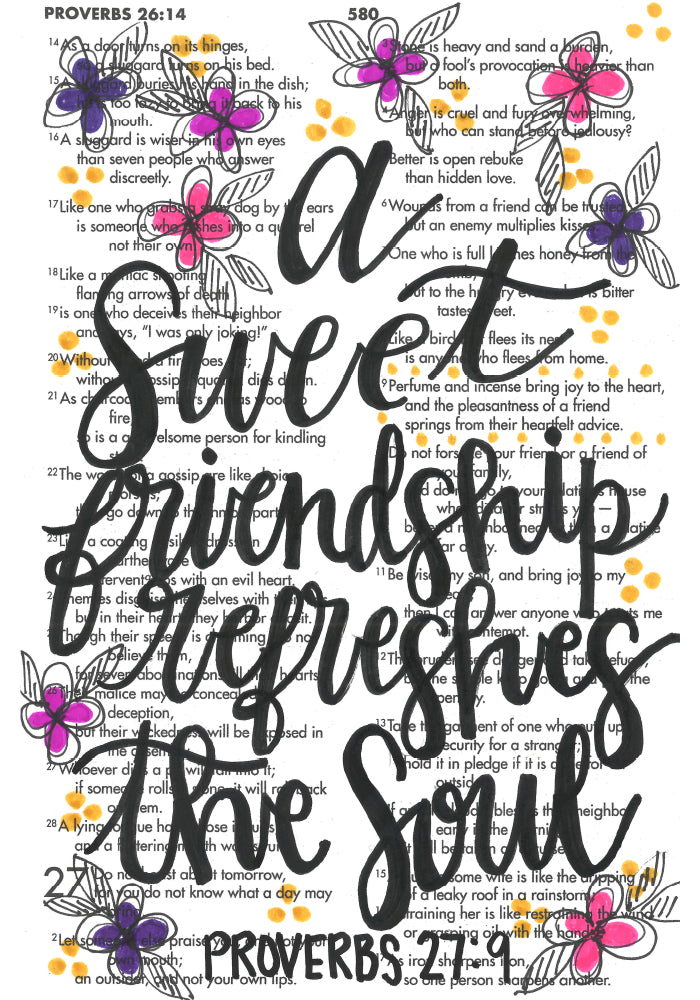 PROVERBS 26:14
580
a
Sweet
friendship
refreshes
the Soul
PROVERBS 27:9
14 As a door turns on its hinges,
so a sluggard turns on his bed.
15 A sluggard buries his hand in the dish;
he is too lazy to bring it back to his
mouth.
16 A sluggard is wiser in his own eyes
than seven people who answer
discreetly.
17 Like one who grabs a stray dog by the ears
is someone who rushes into a quarrel
not their own.
18 Like a maniac shooting
flaming arrows of death
19 is one who deceives their neighbor
and says, “I was only joking!”
20 Without a fire goes
without gossip a quarrel dies down.
21 As charcoal embers as wood to
fire,
so is a quarrelsome person for kindling
22 The words of a gossip are like choice
morsels;
they go down to the inmost parts.
23 Like a coating of silver dross on
earthenware
are fervent lips with an evil heart.
24 Enemies disguise themselves with their lips
but in their hearts they harbor deceit.
25 Though their speech is charming, do not
believe them,
for seven abominations fill their hearts.
26 Their malice may be concealed
deception,
but their wickedness will be exposed in
the assembly.
27 Whoever digs a pit will fall into it;
if someone rolls a stone, it will roll back
on them.
28 A lying tongue hates those it hurts,
and a flattering mouth works ruin.
27 Do not boast about tomorrow,
for you do not know what a day may
bring.
2 Let someone else praise you, and not your
own mouth;
an outsider, and not your own lips.
3 Stone is heavy and sand a burden,
but a fool’s provocation is heavier than
both.
4 Anger is cruel and fury overwhelming,
but who can stand before jealousy?
Better is open rebuke
than hidden love.
6 Wounds from a friend can be trusted,
but an enemy multiplies kisses.
7 One who is full loathes honey from the
comb,
but to the hungry even what is bitter
tastes sweet.
Like a bird that flees its nest
is anyone who flees from home.
9 Perfume and incense bring joy to the heart,
and the pleasantness of a friend
springs from their heartfelt advice.
Do not forsake your friend or a friend of
your family,
and do not go to your relative’s house
when disaster strikes you —
better a neighbor nearby than a relative
far away.
11 Be wise, my son, and bring joy to my
heart;
then I can answer anyone who treats me
with contempt.
12 The prudent see danger and take refuge,
but the simple keep going and pay the
penalty.
13 Take the garment of one who puts up
security for a stranger;
hold it in pledge if it is done for
outsider.
If anyone loudly blesses their neighbor
early in the morning,
it will be taken as a curse.
15 A quarrelsome wife is like the dripping
of a leaky roof in a rainstorm;
restraining her is like restraining the wind
or grasping oil with the hand.
As iron sharpens iron,
so one person sharpens another.